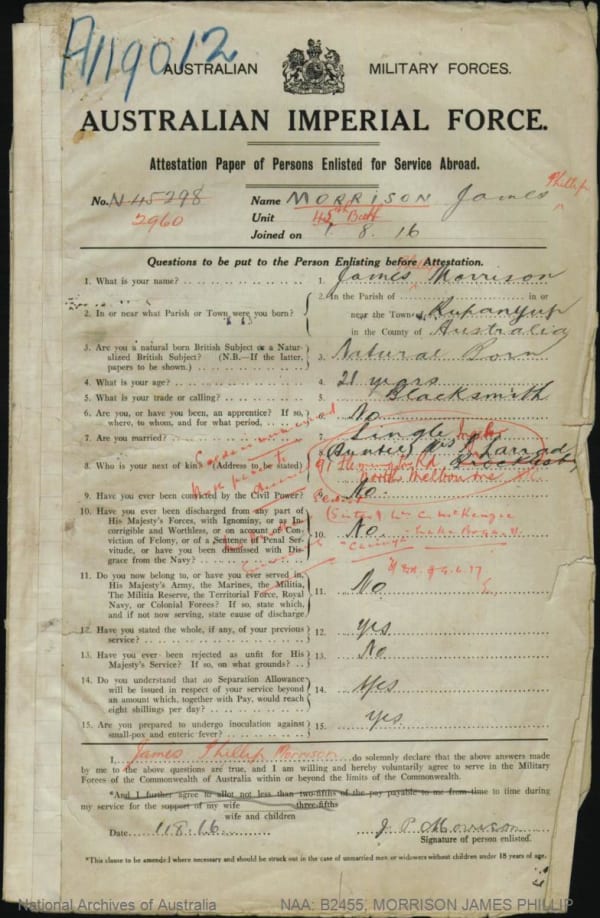 A119012
AUSTRALIAN MILITARY FORCES.
AUSTRALIAN IMPERIAL FORCE.
Attestation Paper of Persons Enlisted for Service Abroad.
No. N45298 Name MORRISON James Phillip
2960 Unit 45th Batt
Joined on 1.8.16
Questions to be put to the Person Enlisting before Attestation.
1. What is your name? 1. James Phillip Morrison
2. In or near what Parish or Town were you born? 2. In the Parish of in or
near the Town of Rupanyup
in the County of Australia
3. Are you a natural born British Subject or a Natur-
alized British Subject? (N.B.—If the latter,
papers to be shown.) 3. Natural Born
4. What is your age? 4. 21 years
5. What is your trade or calling? 5. Blacksmith
6. Are you, or have you been, an apprentice? If so,
where, to whom, and for what period, 6. No
7. Are you married? 7. Single
8. Who is your next of kin? (Address to be stated) 8. (Auntie) Mrs
North Melbourne
9. Have you ever been convicted by the Civil Power? 9. No.
(Sister) Mrs C. McKenzie
10. Have you ever been discharged from any part of
His Majesty's Forces, with Ignominy, or as In-
corrigible and Worthless, or on account of Con-
viction of Felony, or of a Sentence of Penal Ser-
vitude, or have you been dismissed with Dis-
grace from the Navy? 10. No.
11. Do you now belong to, or have you ever served in,
His Majesty's Army, the Marines, the Militia,
The Militia Reserve, the Territorial Force, Royal
Navy, or Colonial Forces? If so, state which,
and if not now serving, state cause of discharge 11. No
12. Have you stated the whole, if any, of your previous
service? 12. yes
13. Have you ever been rejected as unfit for His
Majesty's Service? If so, on what grounds? 13. No
14. Do you understand that no Separation Allowance
will be issued in respect of your service beyond
an amount which, together with Pay, would reach
eight shillings per day? 14. yes
15. Are you prepared to undergo inoculation against
small-pox and enteric fever? 15. yes
I, James Phillip Morrison do solemnly declare that the above answers made
by me to the above questions are true, and I am willing and hereby voluntarily agree to serve in the Military
Forces of the Commonwealth of Australia within or beyond the limits of the Commonwealth.
*And I further agree to allot not less than two-fifths of the pay payable to me from time to time during
my service for the support of my wife three-fifths
wife and children
Date 1.8.16 J. P. Morrison
Signature of person enlisted.
*This clause to be amended where necessary and should be struck out in the case of unmarried men or widowers without children under 18 years of age.
National Archives of Australia NAA: B2455, MORRISON JAMES PHILLIP